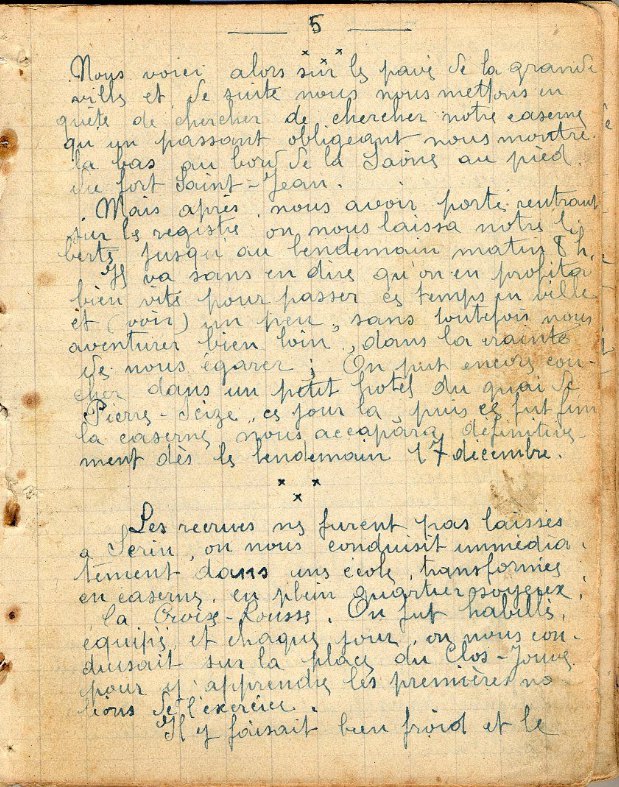 5
x x x
Nous voici alors sur le pavé de la grande
ville et de suite nous nous mettons en
quête de chercher de chercher notre caserne
qu un passant obligeant nous montre
la bas au bord de la Saône au pied
du fort Saint-Jean.
Mais après, nous avoir porté rentrant
sur le registre on nous laissa notre li
berté jusqu'au lendemain matin 8 h.
Il va sans en dire qu'on en profita
bien vite pour passer ce temps en ville
et (voir) un peu, sans toutefois nous
aventurer bien loin, dans la crainte
de nous égarer; On put encore cou-
cher dans un petit hotel du quai de
Pierre-Seize, ce jour la, puis ce fut fini
la caserne nous accapara définitive-
ment dès le lendemain 17 décembre.
x x
x
Les recrues ne furent pas laissés
a Serin, on nous conduisit immédia
tement dans une école, transformée
en caserne, en plein quartier soyeux,
la Croix-Rousse. On fut habillé,
équipé et chaque jour, on nous con-
duisait sur la place du Clos-Jouve
pour y apprendre les premières no-
tions de l'exercice.
Il y faisait bien froid et le